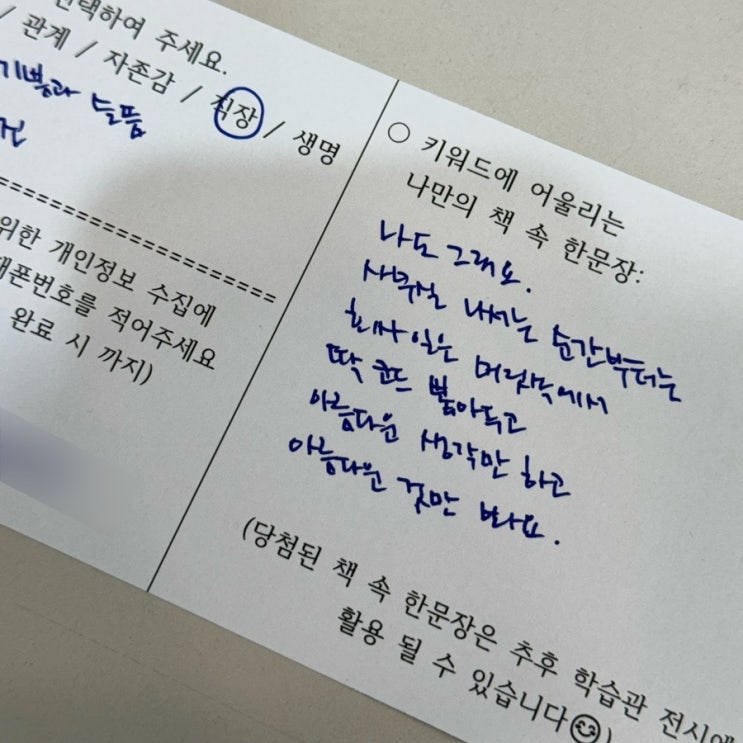 선택하여 주세요.
/ 관계 / 자존감 / 직장 / 생명
기쁨과 슬픔
==================
위한 개인정보 수집에
대폰번호를 적어주세요
완료 시 까지)
○ 키워드에 어울리는
나만의 책 속 한문장:
나도 그래요.
사무실 나서는 순간부터는
회사 일은 머릿속에서
딱 코드 뽑아두고
아름다운 생각만 하고
아름다운 것만 봐요.
(당첨된 책 속 한문장은 추후 학습관 전시에
활용 될 수 있습니다☺)